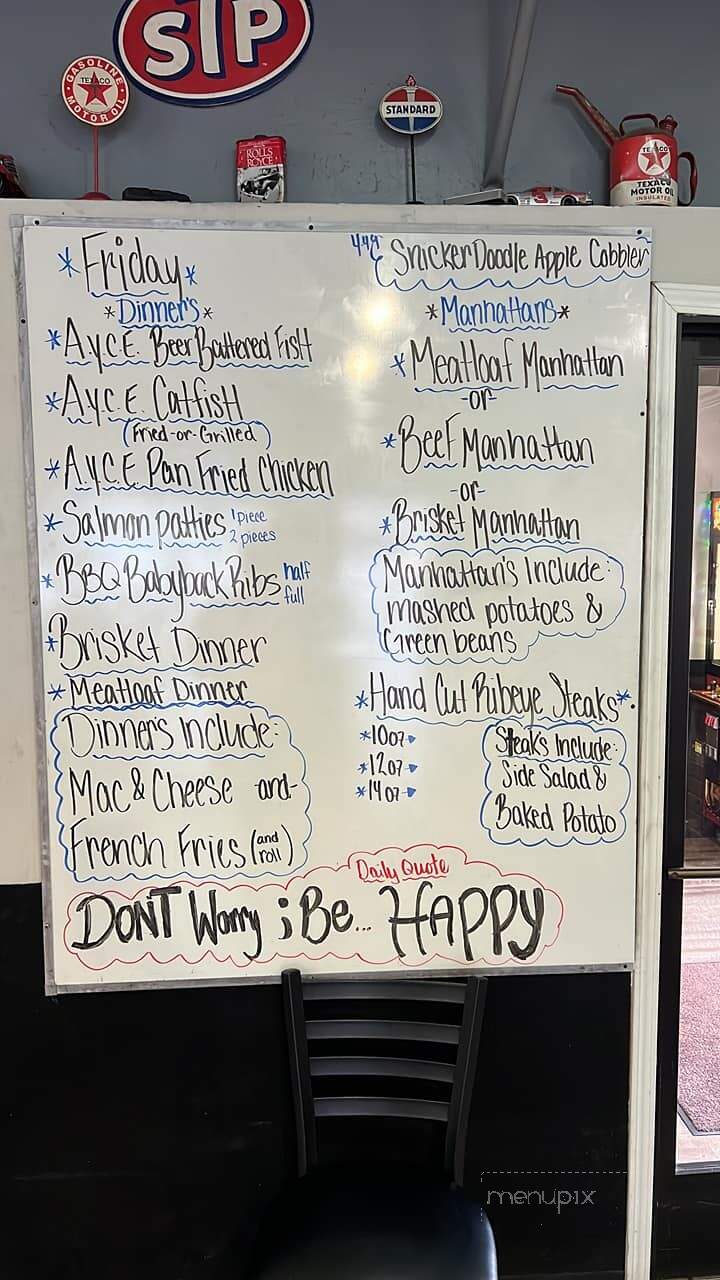 STP
GASOLINE
TEXACO
MOTOR OIL
STANDARD
ROLLS
ROYCE
TEXACO
TEXACO
MOTOR OIL
INSULATED
*Friday*
*Dinner's*
*A.y.C.E. Beer Battered Fish
*A.y.C.E. Catfish
(Fried-or-Grilled)
*A.y.C.E Pan Fried Chicken
*Salmon patties 1 piece
2 pieces
*BBQ Babyback Ribs half
full
*Brisket Dinner
*Meatloaf Dinner
Dinners Include:
Mac & Cheese and-
French Fries (and
roll)
4.49 SnickerDoodle Apple Cobbler
*Manhattans*
*Meatloaf Manhattan
-or-
*Beef Manhattan
-or-
*Brisket Manhattan
Manhattan's Include:
mashed potatoes &
Green beans
*Hand Cut Ribeye Steaks*
*10oz
*12oz
*14oz
Steaks Include:
Side Salad &
Baked Potato
Daily Quote
DONT Worry ; Be... HAPPY
menupix